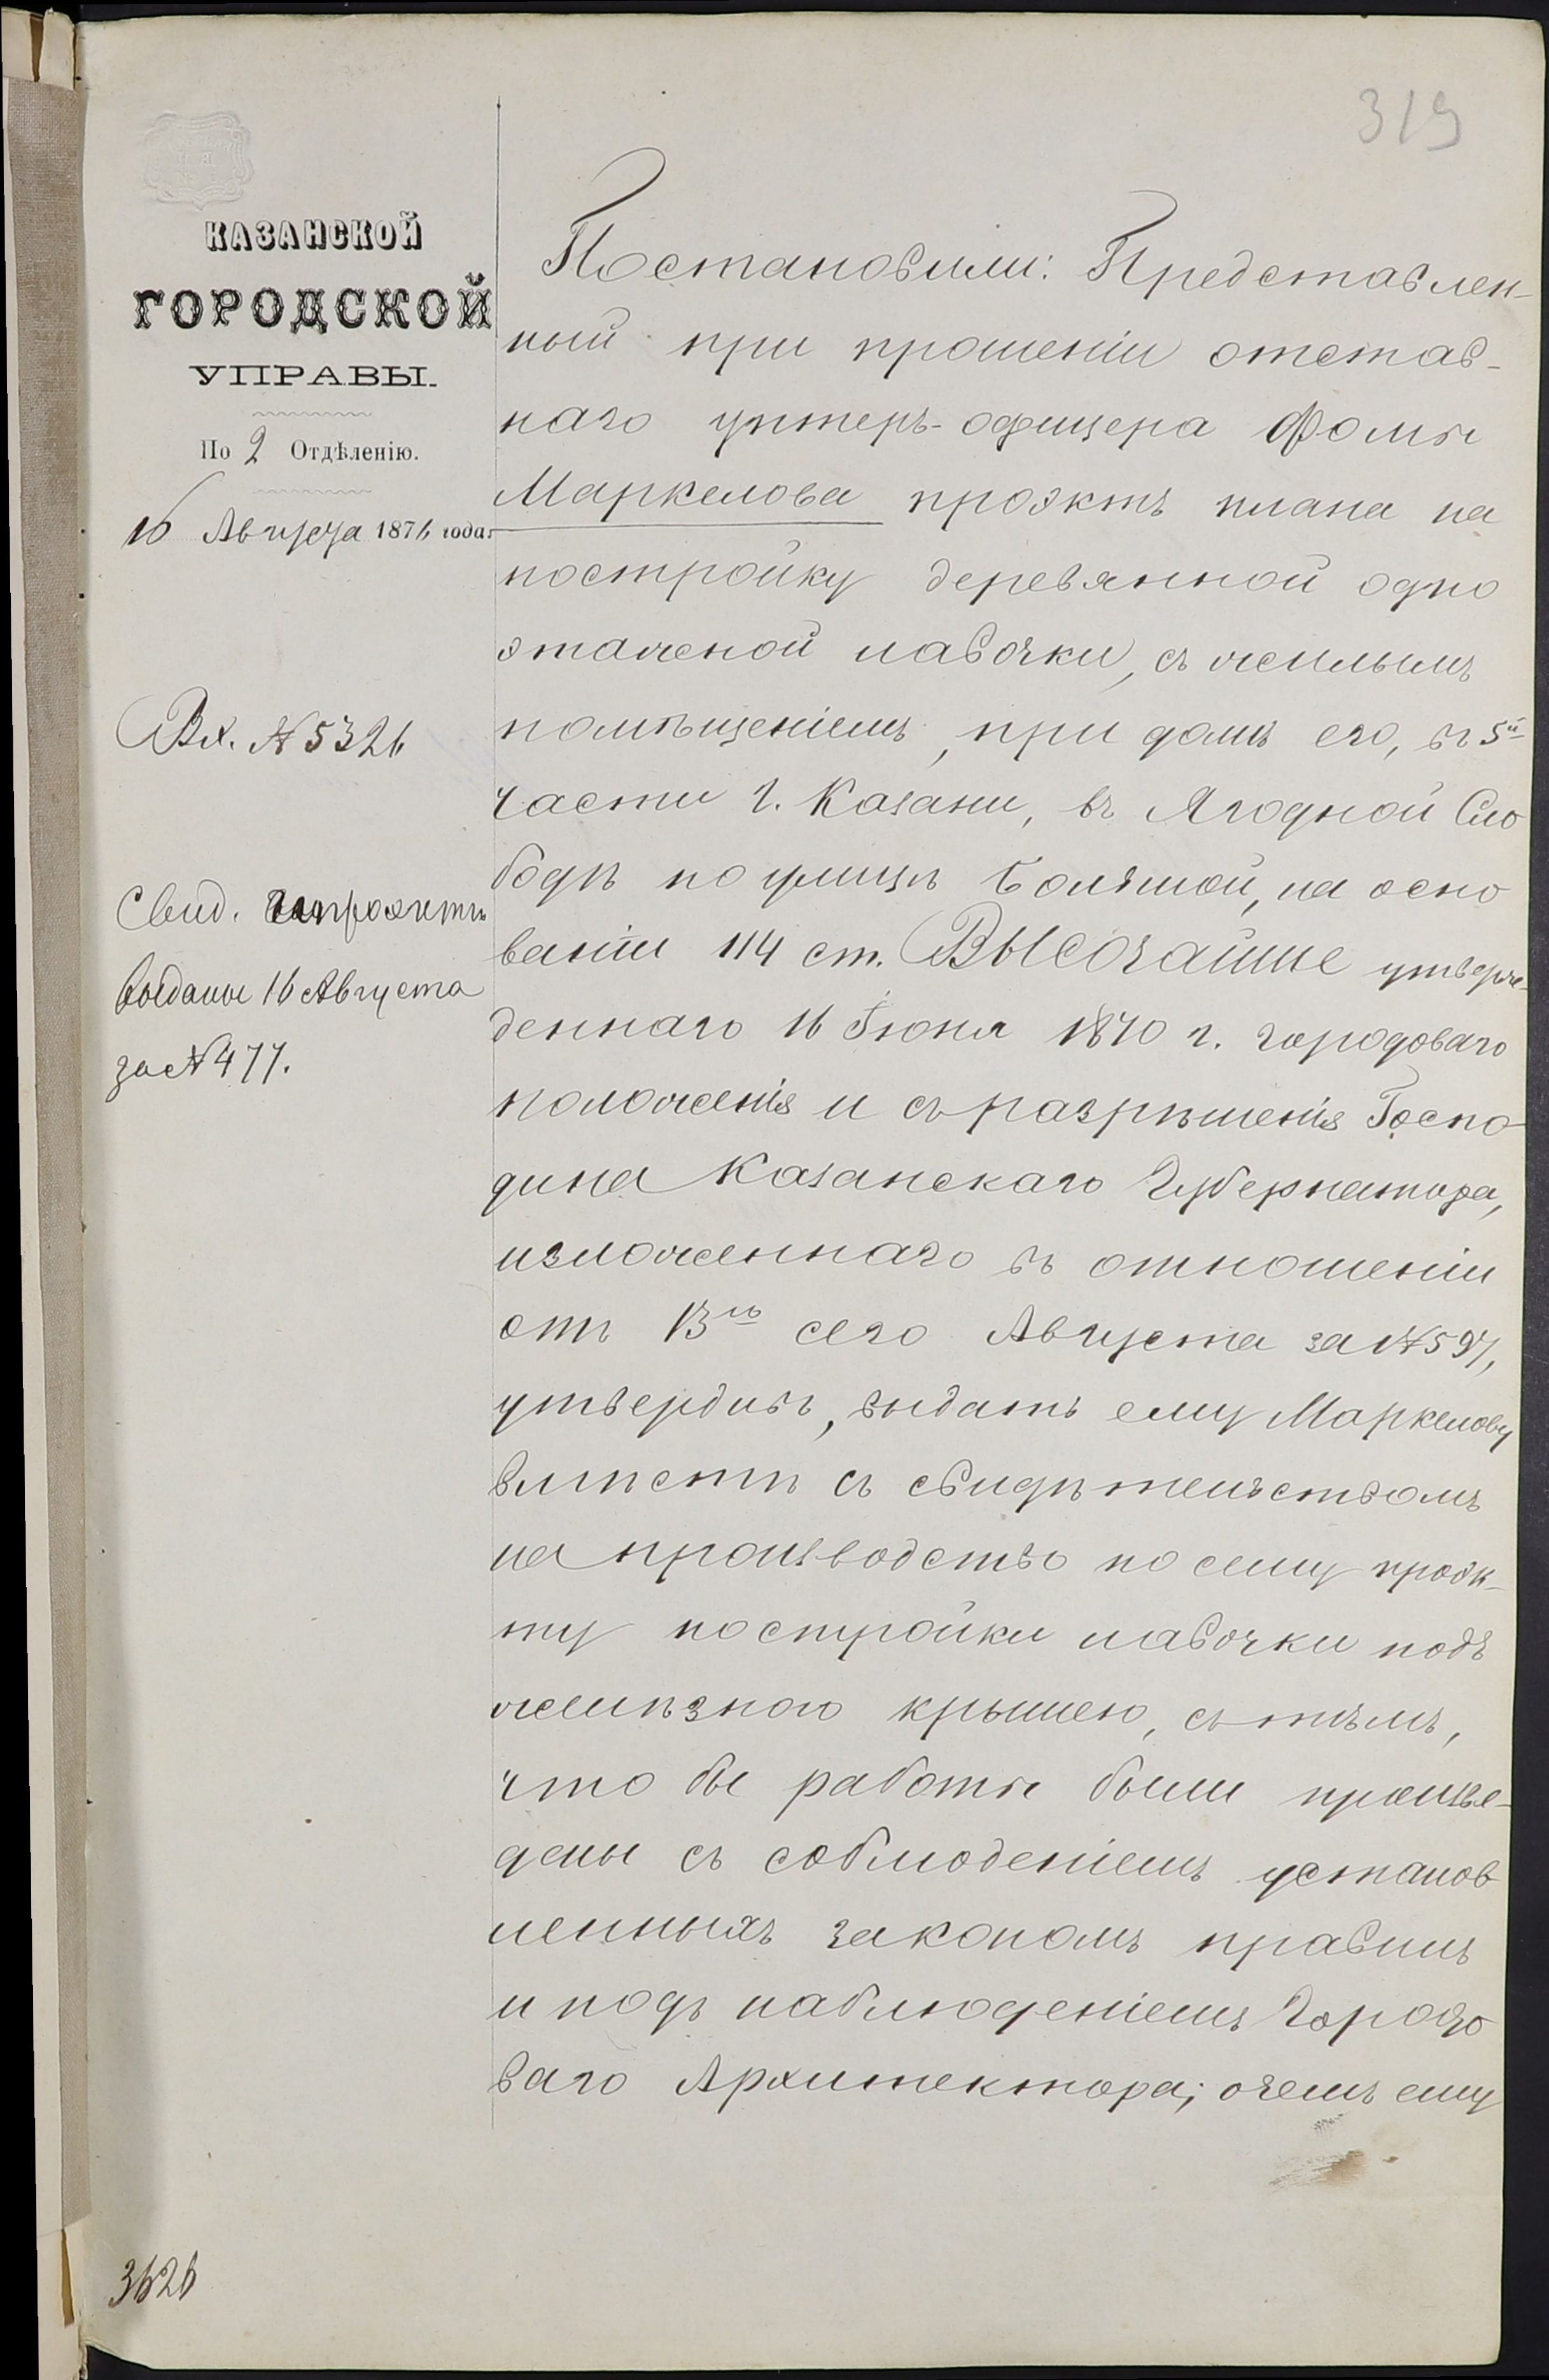 319
КАЗАНСКОЙ
ГОРОДСКОЙ
УПРАВЫ.
По 2 Отдѣленію.
16 Августа 1876 года.
Вх. № 5326
Свид. и проэктъ
выданы 16 Августа
за № 477.
Постановили: Представлен-
ный при прошеніи отстав-
наго унтеръ-офицера Фомы
Маркелова проэктъ плана на
постройку деревянной одно
этажной лавочки, съ жилымъ
помѣщеніемъ, при домѣ его, въ 5й
части г. Казани, въ Ягодной Сло
бодѣ по улицѣ Большой, на осно
ваніи 114 ст. Высочайше утверж-
деннаго 16 Іюня 1870 г. городоваго
положенія и съ разрѣшенія Госпо-
дина Казанскаго Губернатора,
изложеннаго въ отношеніи
отъ 13го сего Августа за № 597,
утвердивъ, выдать ему Маркелову
вмѣстѣ съ свидѣтельствомъ
на производство по сему проэк-
ту постройки лавочки подъ
желѣзною крышею, съ тѣмъ,
что бы работы были произве-
дены съ соблюденіемъ установ
ленныхъ закономъ правилъ
и подъ наблюденіемъ Городо
ваго Архитектора; о чемъ ему
3626